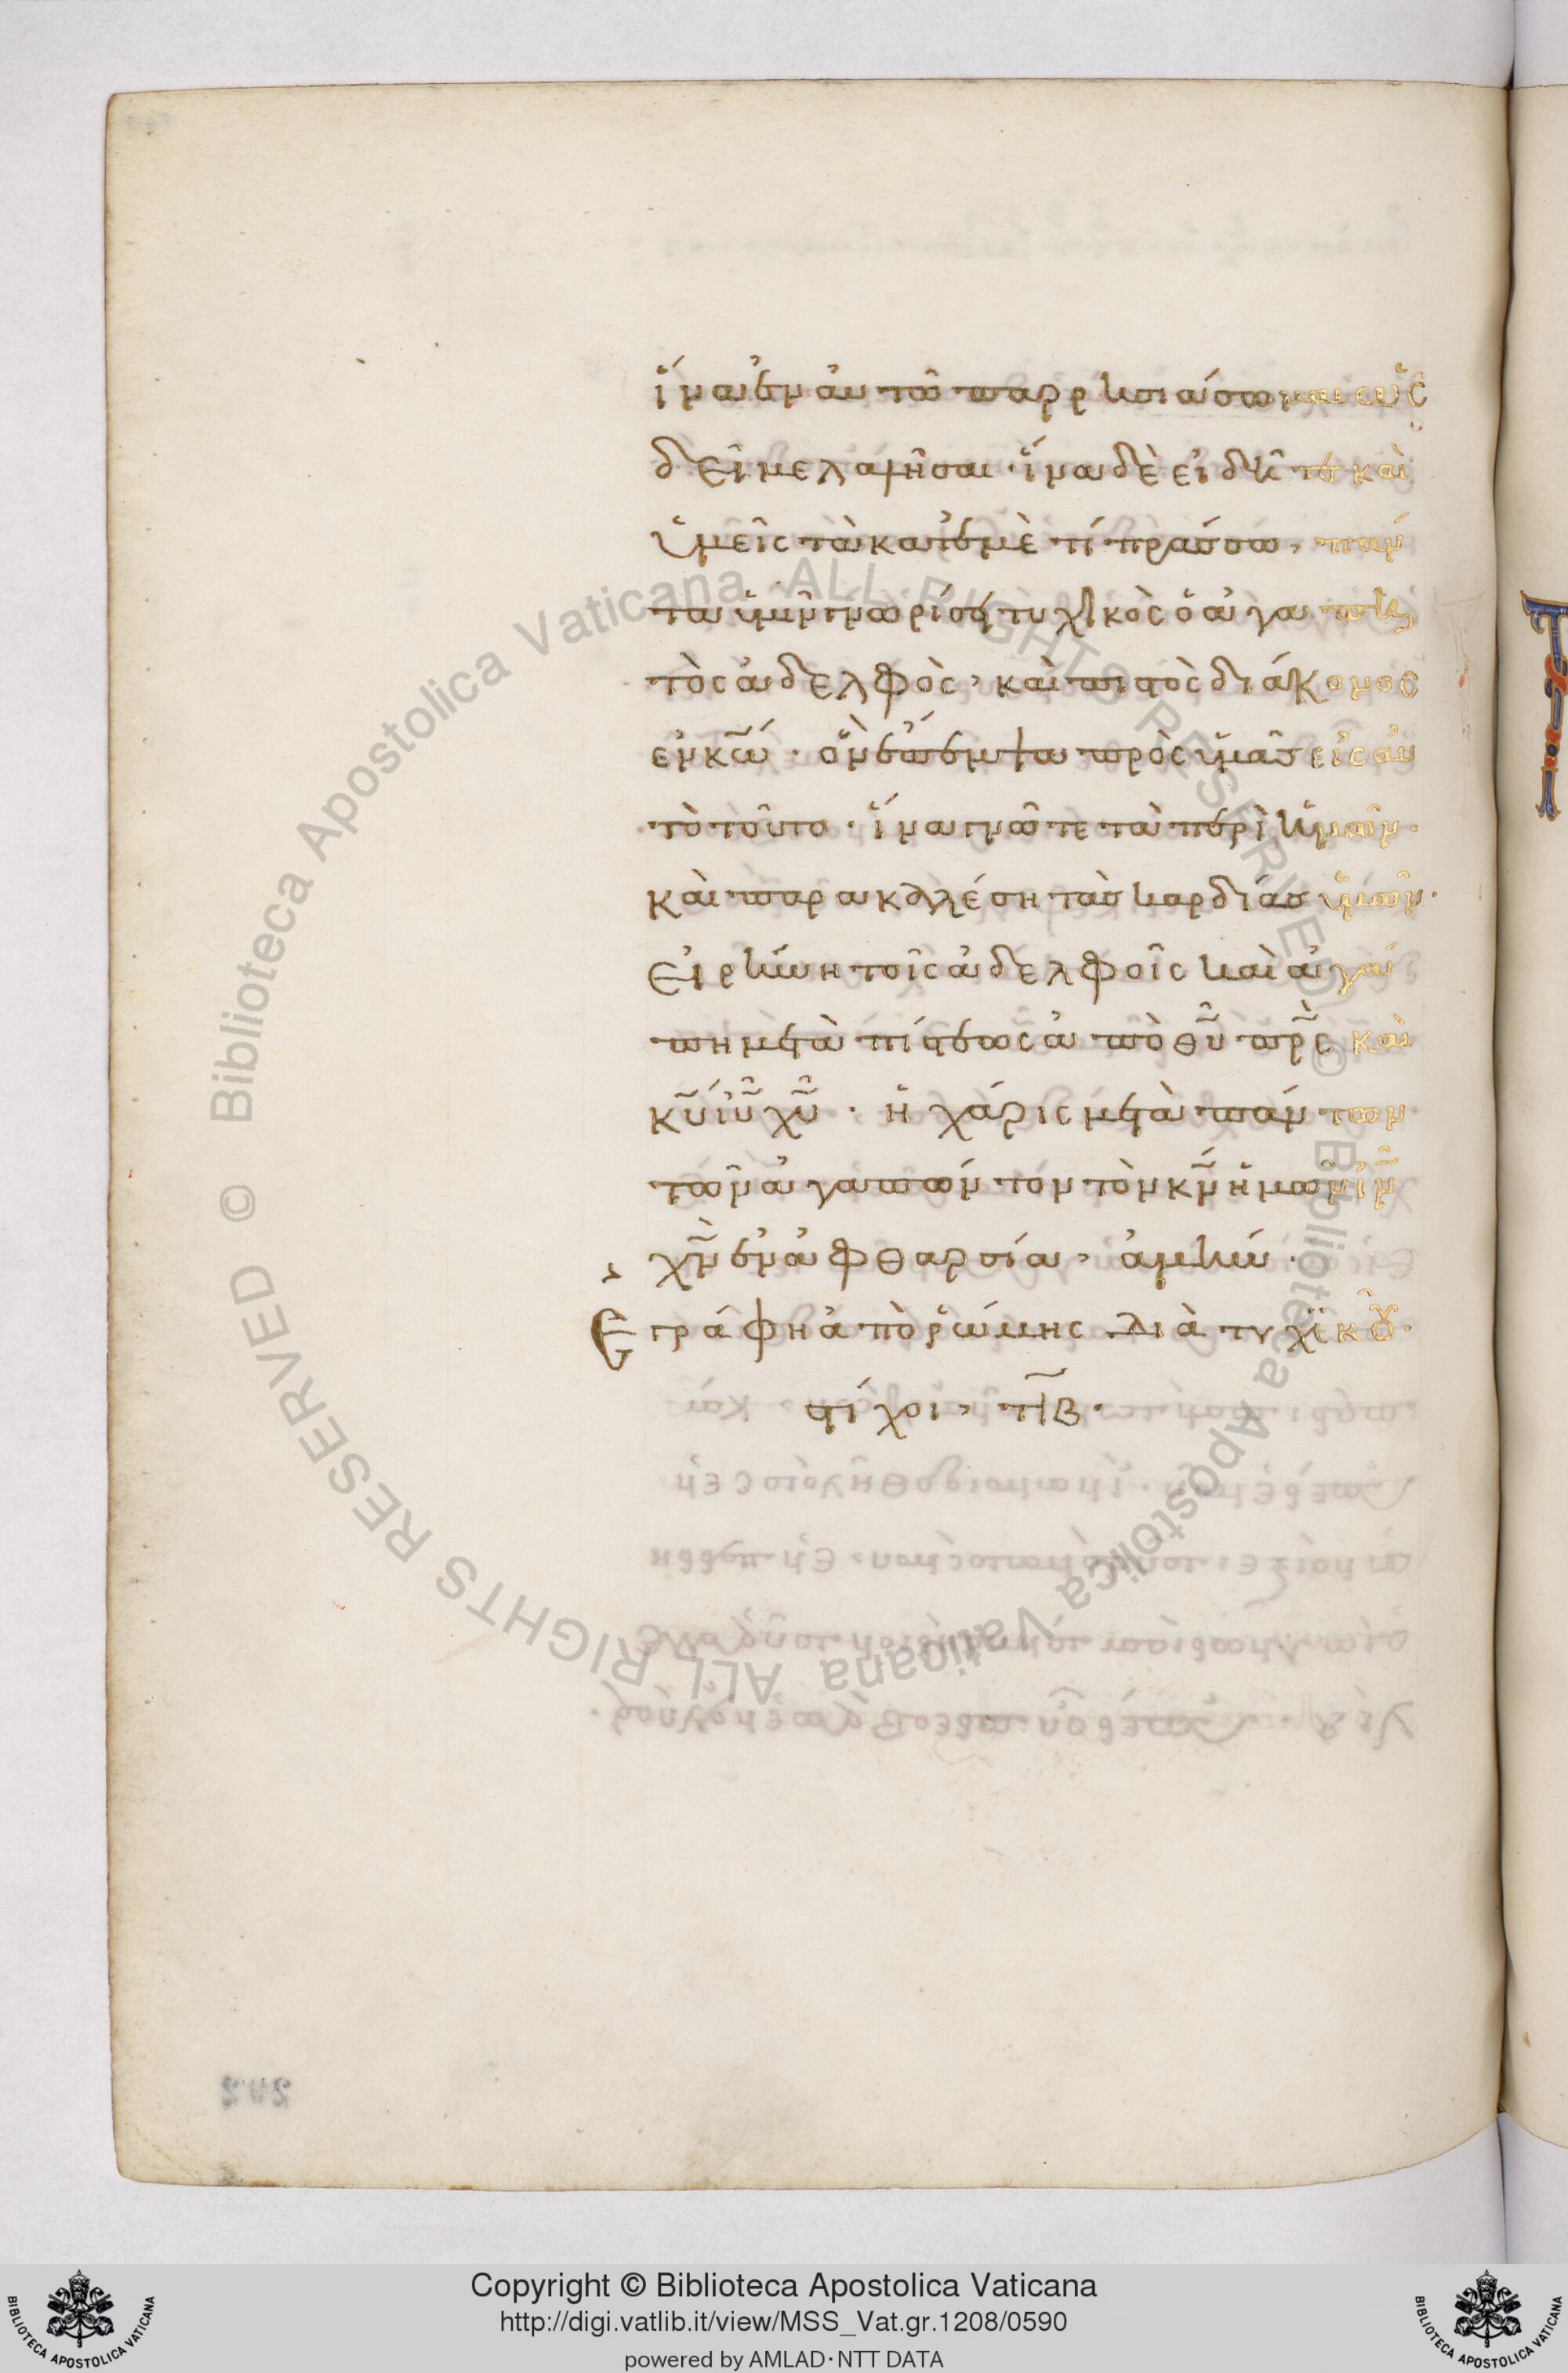 ἵνα ἐν αὐτῶ παρρησιάσωμαι ὡς
δεῖ με λαλῆσαι · ἵνα δὲ εἰδῆτε καὶ
ὑμεῖς τὰ κατ' ἐμὲ τί πράσσω, πάν
τα ὑμῖν γνωρίσει τυχικὸς ὁ ἀγαπη
τὸς ἀδελφὸς, καὶ πιστὸς διάκονος
ἐν κω̅ · ὃν ἔπεμψα πρὸς ὑμᾶς εἰς αὐ
τὸ τοῦτο · ἵνα γνῶτε τὰ περὶ ἡμῶν ·
καὶ παρακαλέση τὰς καρδίας ὑμῶν ·
Εἰρήνη τοῖς ἀδελφοῖς καὶ ἀγά
πη μετὰ πίστεως ἀπὸ θυ̅ πρ̅ς καὶ
κυ̅ ιυ̅ χυ̅ · ἡ χάρις μετὰ πάντων
τῶν ἀγαπώντων τὸν κν̅ ἡμῶν ιν̅
χν̅ ἐν ἀφθαρσία, ἀμήν ·
Ἐγράφη ἀπὸ ῥώμης διὰ τυχϊκοῦ ·
στίχοι, τιβ̅ ·
Copyright © Biblioteca Apostolica Vaticana
http://digi.vatlib.it/view/MSS_Vat.gr.1208/0590
powered by AMLAD·NTT DATA
BIBLIOTECA APOSTOLICA VATICANA
BIBLIOTECA APOSTOLICA VATICANA
© Biblioteca Apostolica Vaticana ALL RIGHTS RESERVED © Biblioteca Apostolica Vaticana ALL RIGHTS RESERVED